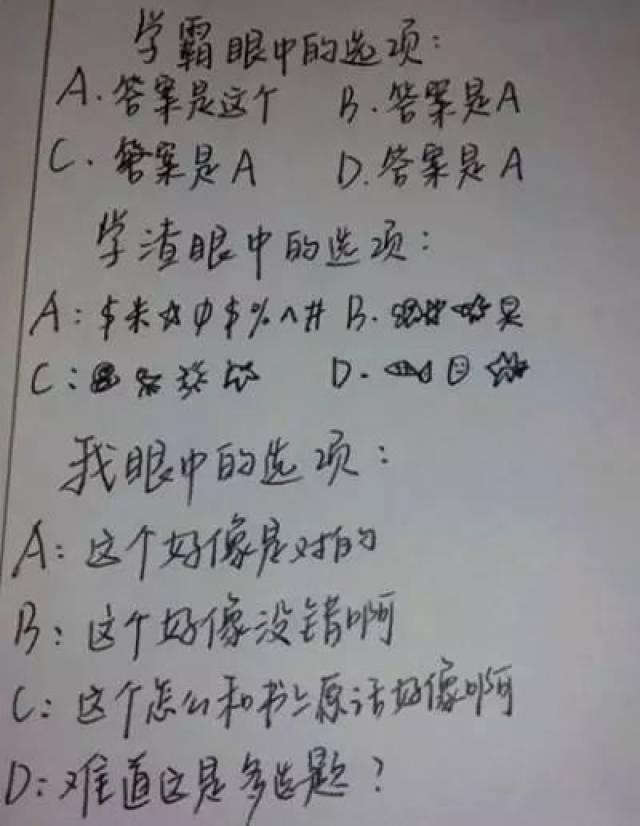 学霸眼中的选项：
A．答案是这个 B．答案是A
C．答案是A D．答案是A
学渣眼中的选项：
A：$米☆φ$%^# B．
C： D．
我眼中的选项：
A：这个好像是对的
B：这个好像没错啊
C：这个怎么和书上原话好像啊
D：难道这是多选题？